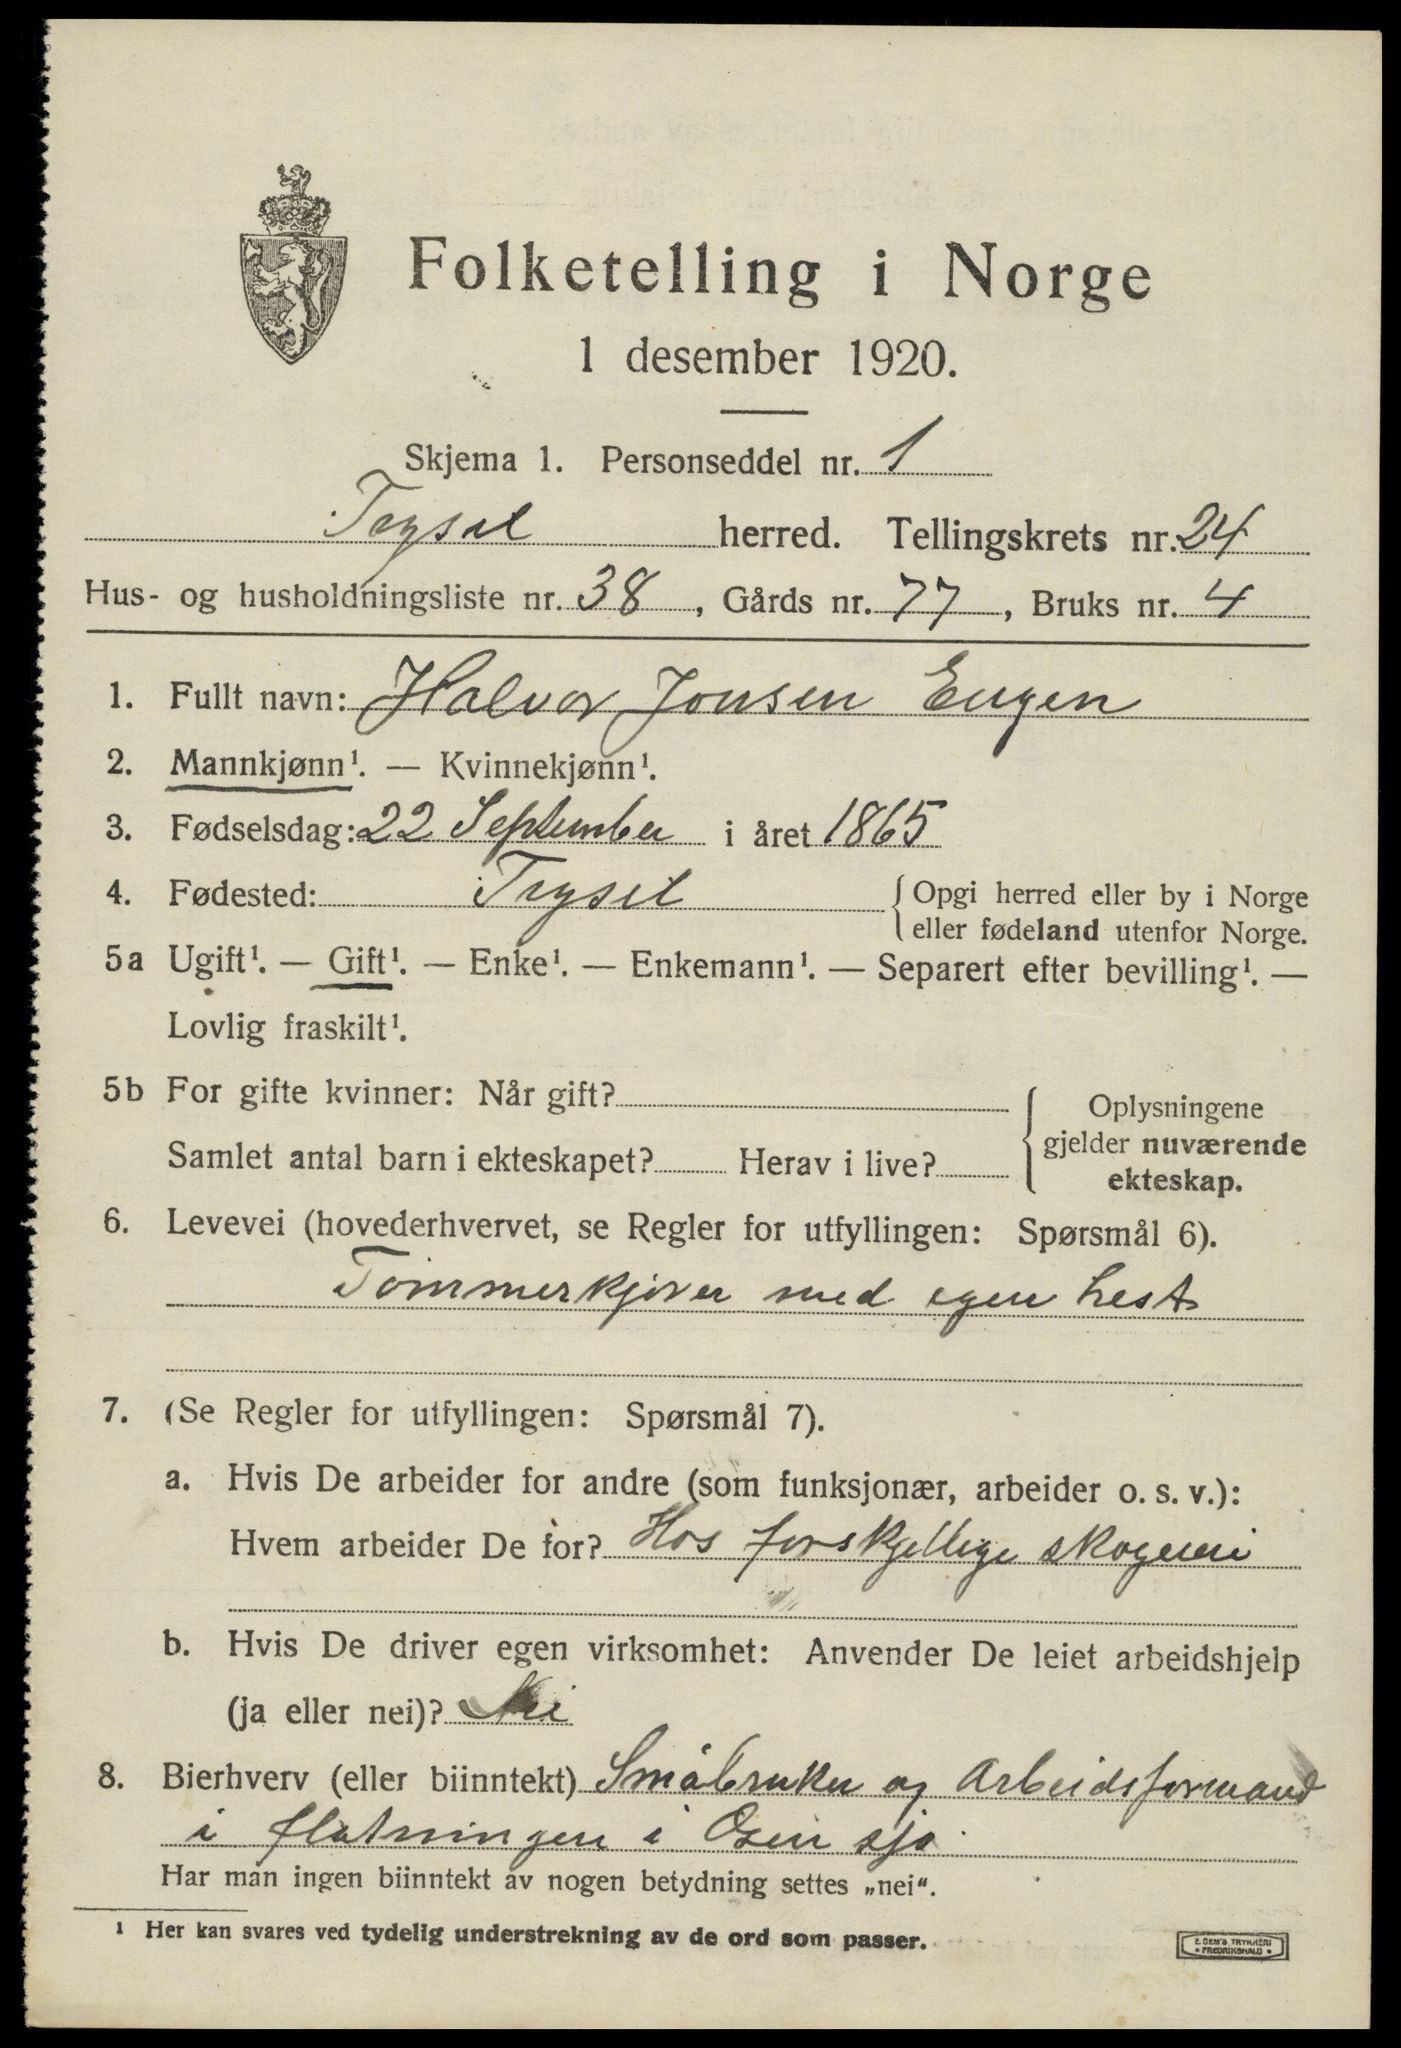 Folketelling i Norge
1 desember 1920.
Skjema 1. Personseddel nr. 1
Trysil herred. Tellingskrets nr. 24
Hus- og husholdningsliste nr. 38, Gårds nr. 77, Bruks nr. 4
1. Fullt navn: Halvor Jonsen Engen
2. Mannkjønn¹. — Kvinnekjønn¹.
3. Fødselsdag: 22 September i året 1865
4. Fødested: Trysil { Opgi herred eller by i Norge
eller fødeland utenfor Norge.
5a Ugift¹. — Gift¹. — Enke¹. — Enkemann¹. — Separert efter bevilling¹. —
Lovlig fraskilt¹.
5b For gifte kvinner: Når gift?
Samlet antal barn i ekteskapet? Herav i live?
{ Oplysningene
gjelder nuværende
ekteskap.
6. Levevei (hovederhvervet, se Regler for utfyllingen: Spørsmål 6).
Tømmerkjører med egen hest
7. (Se Regler for utfyllingen: Spørsmål 7).
a. Hvis De arbeider for andre (som funksjonær, arbeider o. s. v.):
Hvem arbeider De for? Hos forskjellige skogeiere
b. Hvis De driver egen virksomhet: Anvender De leiet arbeidshjelp
(ja eller nei)? Nei
8. Bierhverv (eller biinntekt) Småbruker og Arbeidsformand
i fløtningen i Osen sjø.
Har man ingen biinntekt av nogen betydning settes „nei“.
¹ Her kan svares ved tydelig understrekning av de ord som passer.
E. SEM'S TRYKKERI
• FREDRIKSHALD •